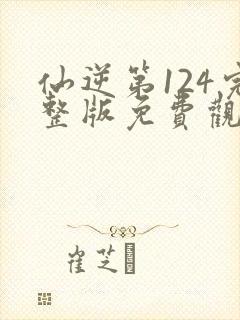 仙逆第124完
整版免費觀
崔芝